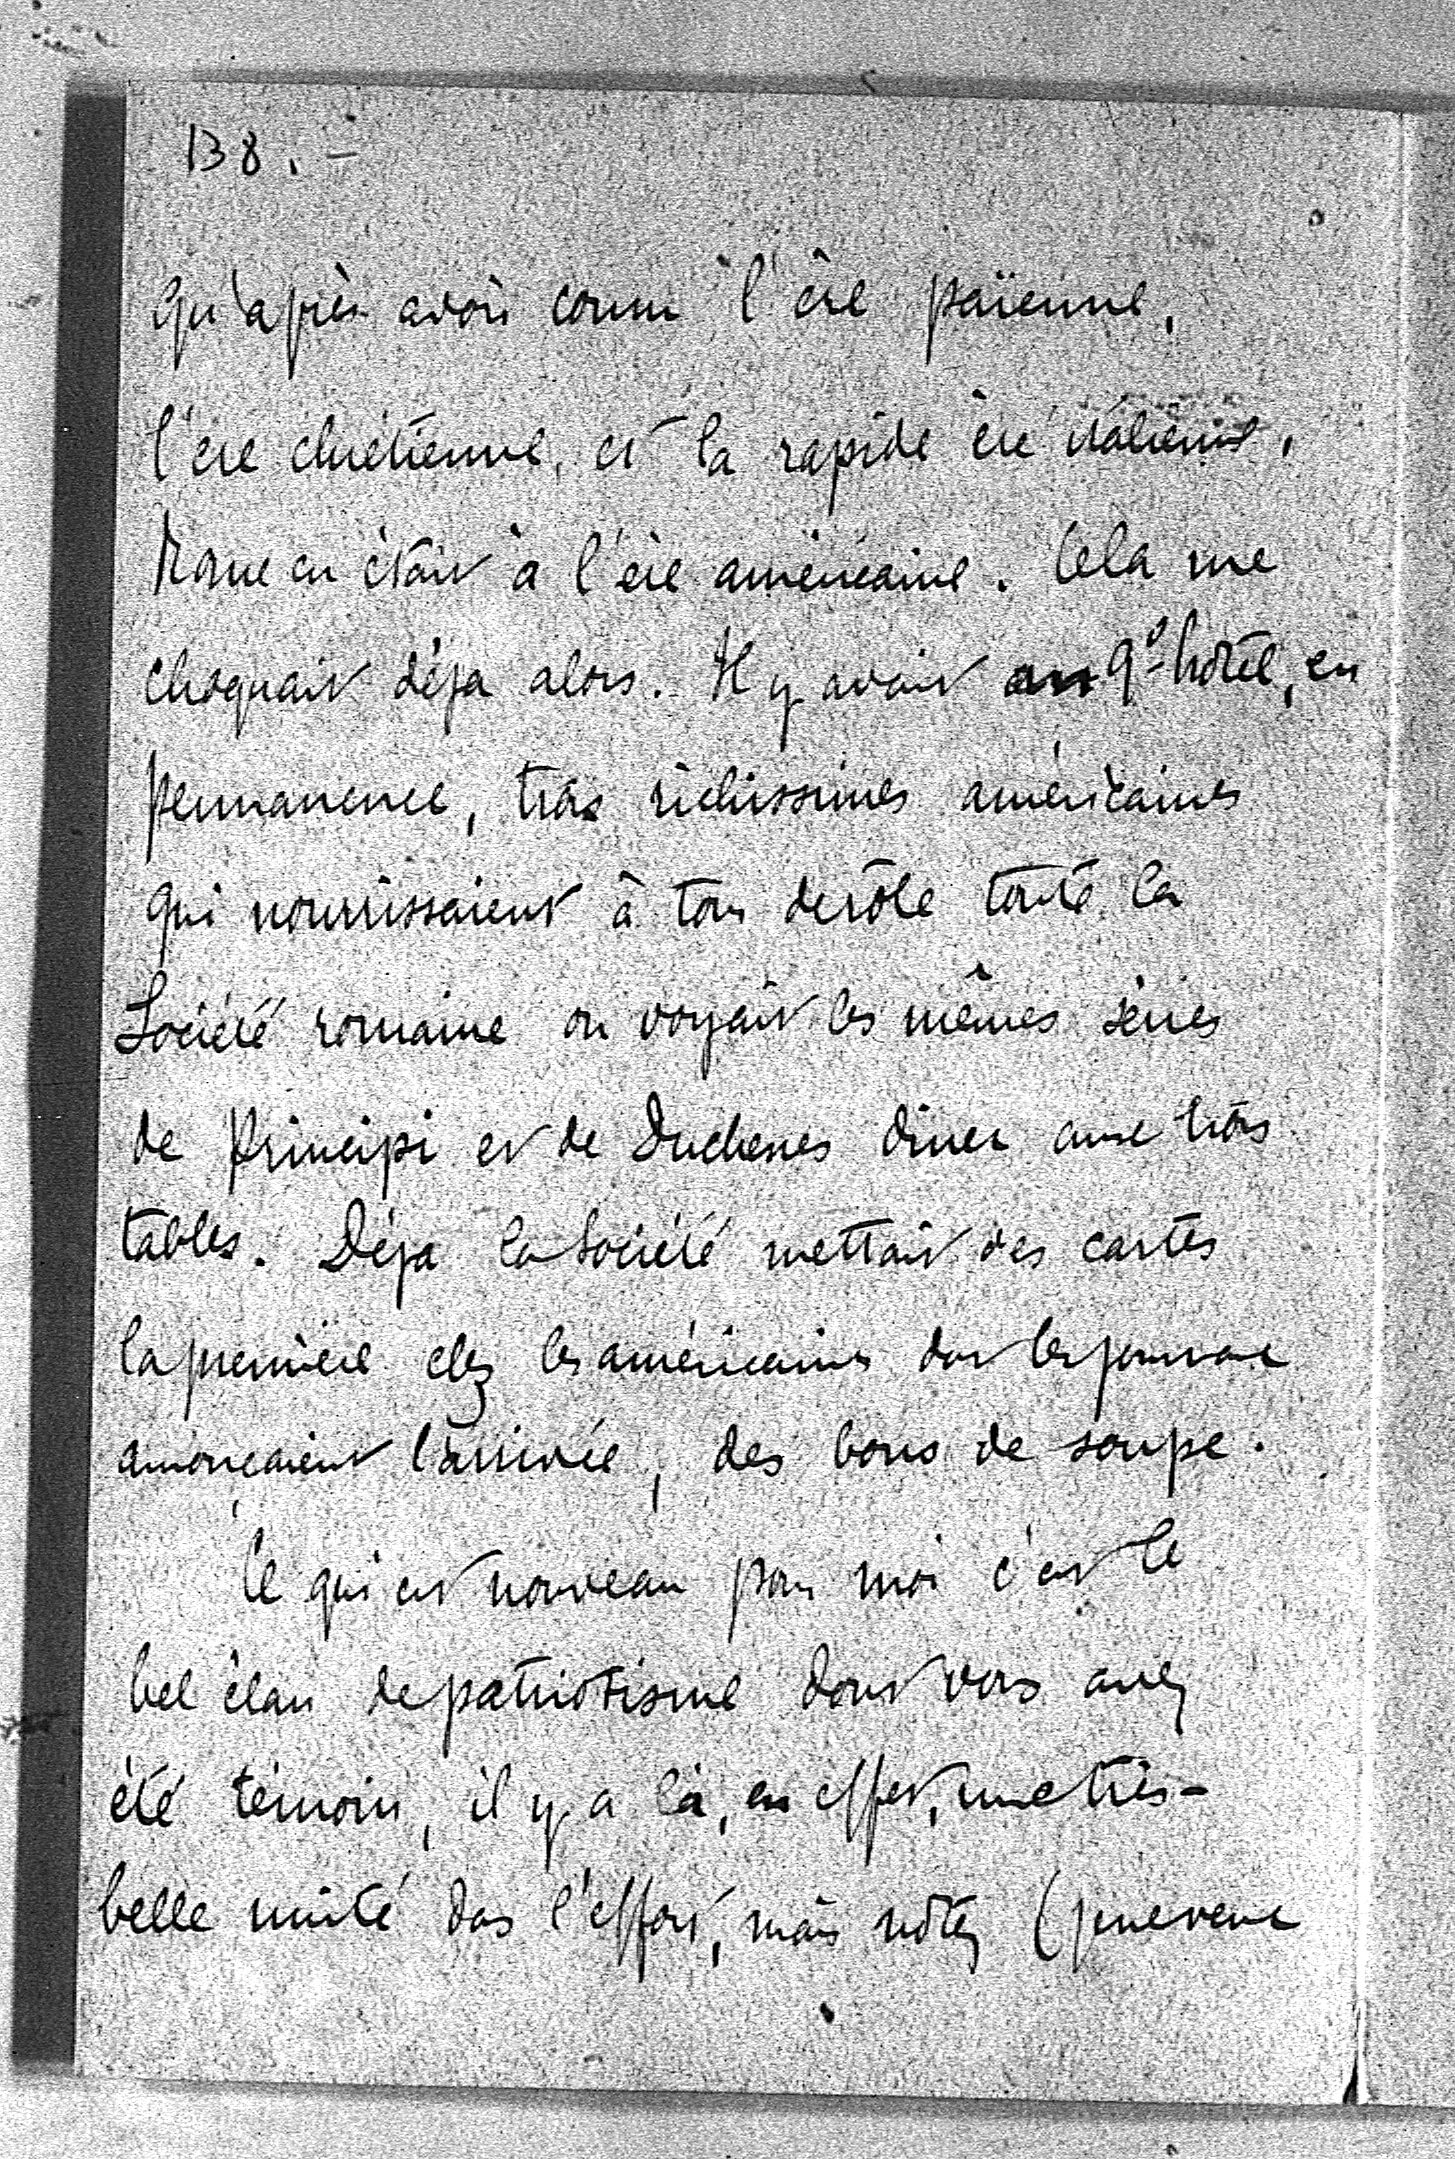 138. -
qu'après avoir connu l'ère païenne,
l'ère chrétienne, et la rapide ère italienne,
Rome en était à l'ère américaine. Cela me
choquait déja alors. Il y avait au gd hôtel, en
permanence, trois richissimes américaines
qui nourrissaient à tour de rôle toute la
Société romaine on voyait les mêmes séries
de Principi et de Duchesses diner aux trois
tables. Déja la Société mettait des cartes
la première chez les américaines dont les journaux
annonçaient l'arrivée, des bons de soupe.
Ce qui est nouveau pour moi c'est le
bel élan de patriotisme dont vous avez
été témoin, il y a là, en effet, une très-
belle unité dans l'effort, mais notez (je ne veux